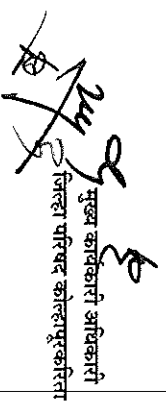 मुख्य कार्यकारी अधिकारी
जिल्हा परिषद कोल्हापूरकरिता